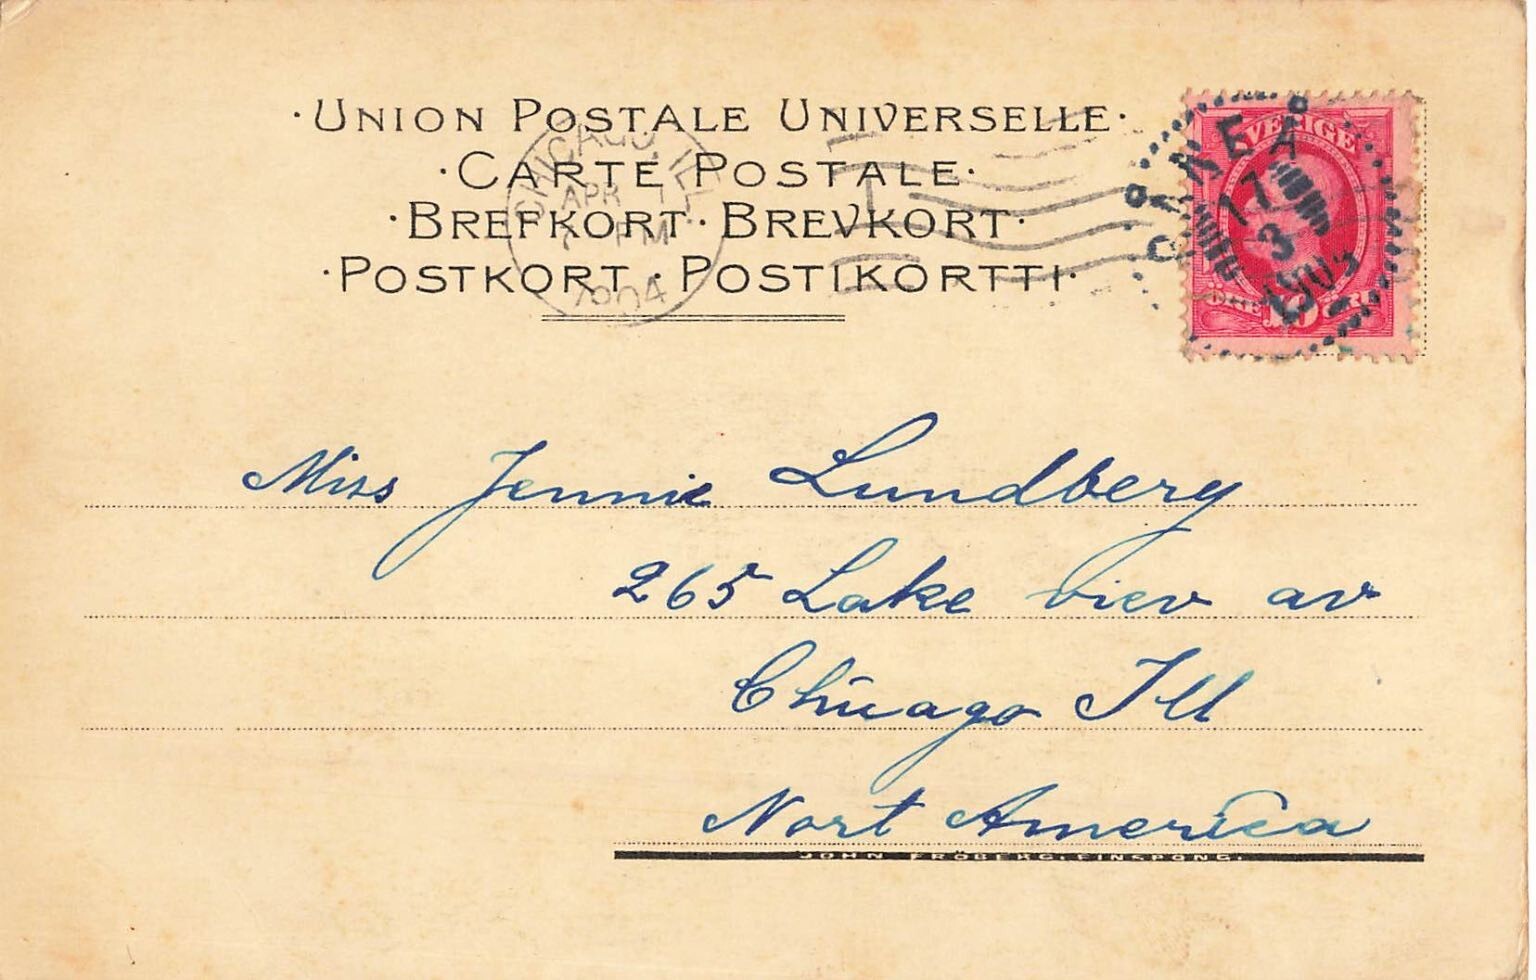 ·UNION POSTALE UNIVERSELLE·
·CARTE POSTALE·
·BREFKORT·BREVKORT·
·POSTKORT·POSTIKORTTI·
CHICAGO, ILL.
APR
7 PM
1904
SVERIGE
17
3
ÖRE 10 ÖRE
Miss Jennie Lundberg
265 Lake view av
Chicago Ill
Nort America
JOHN FRÖBERG, FINSPONG.